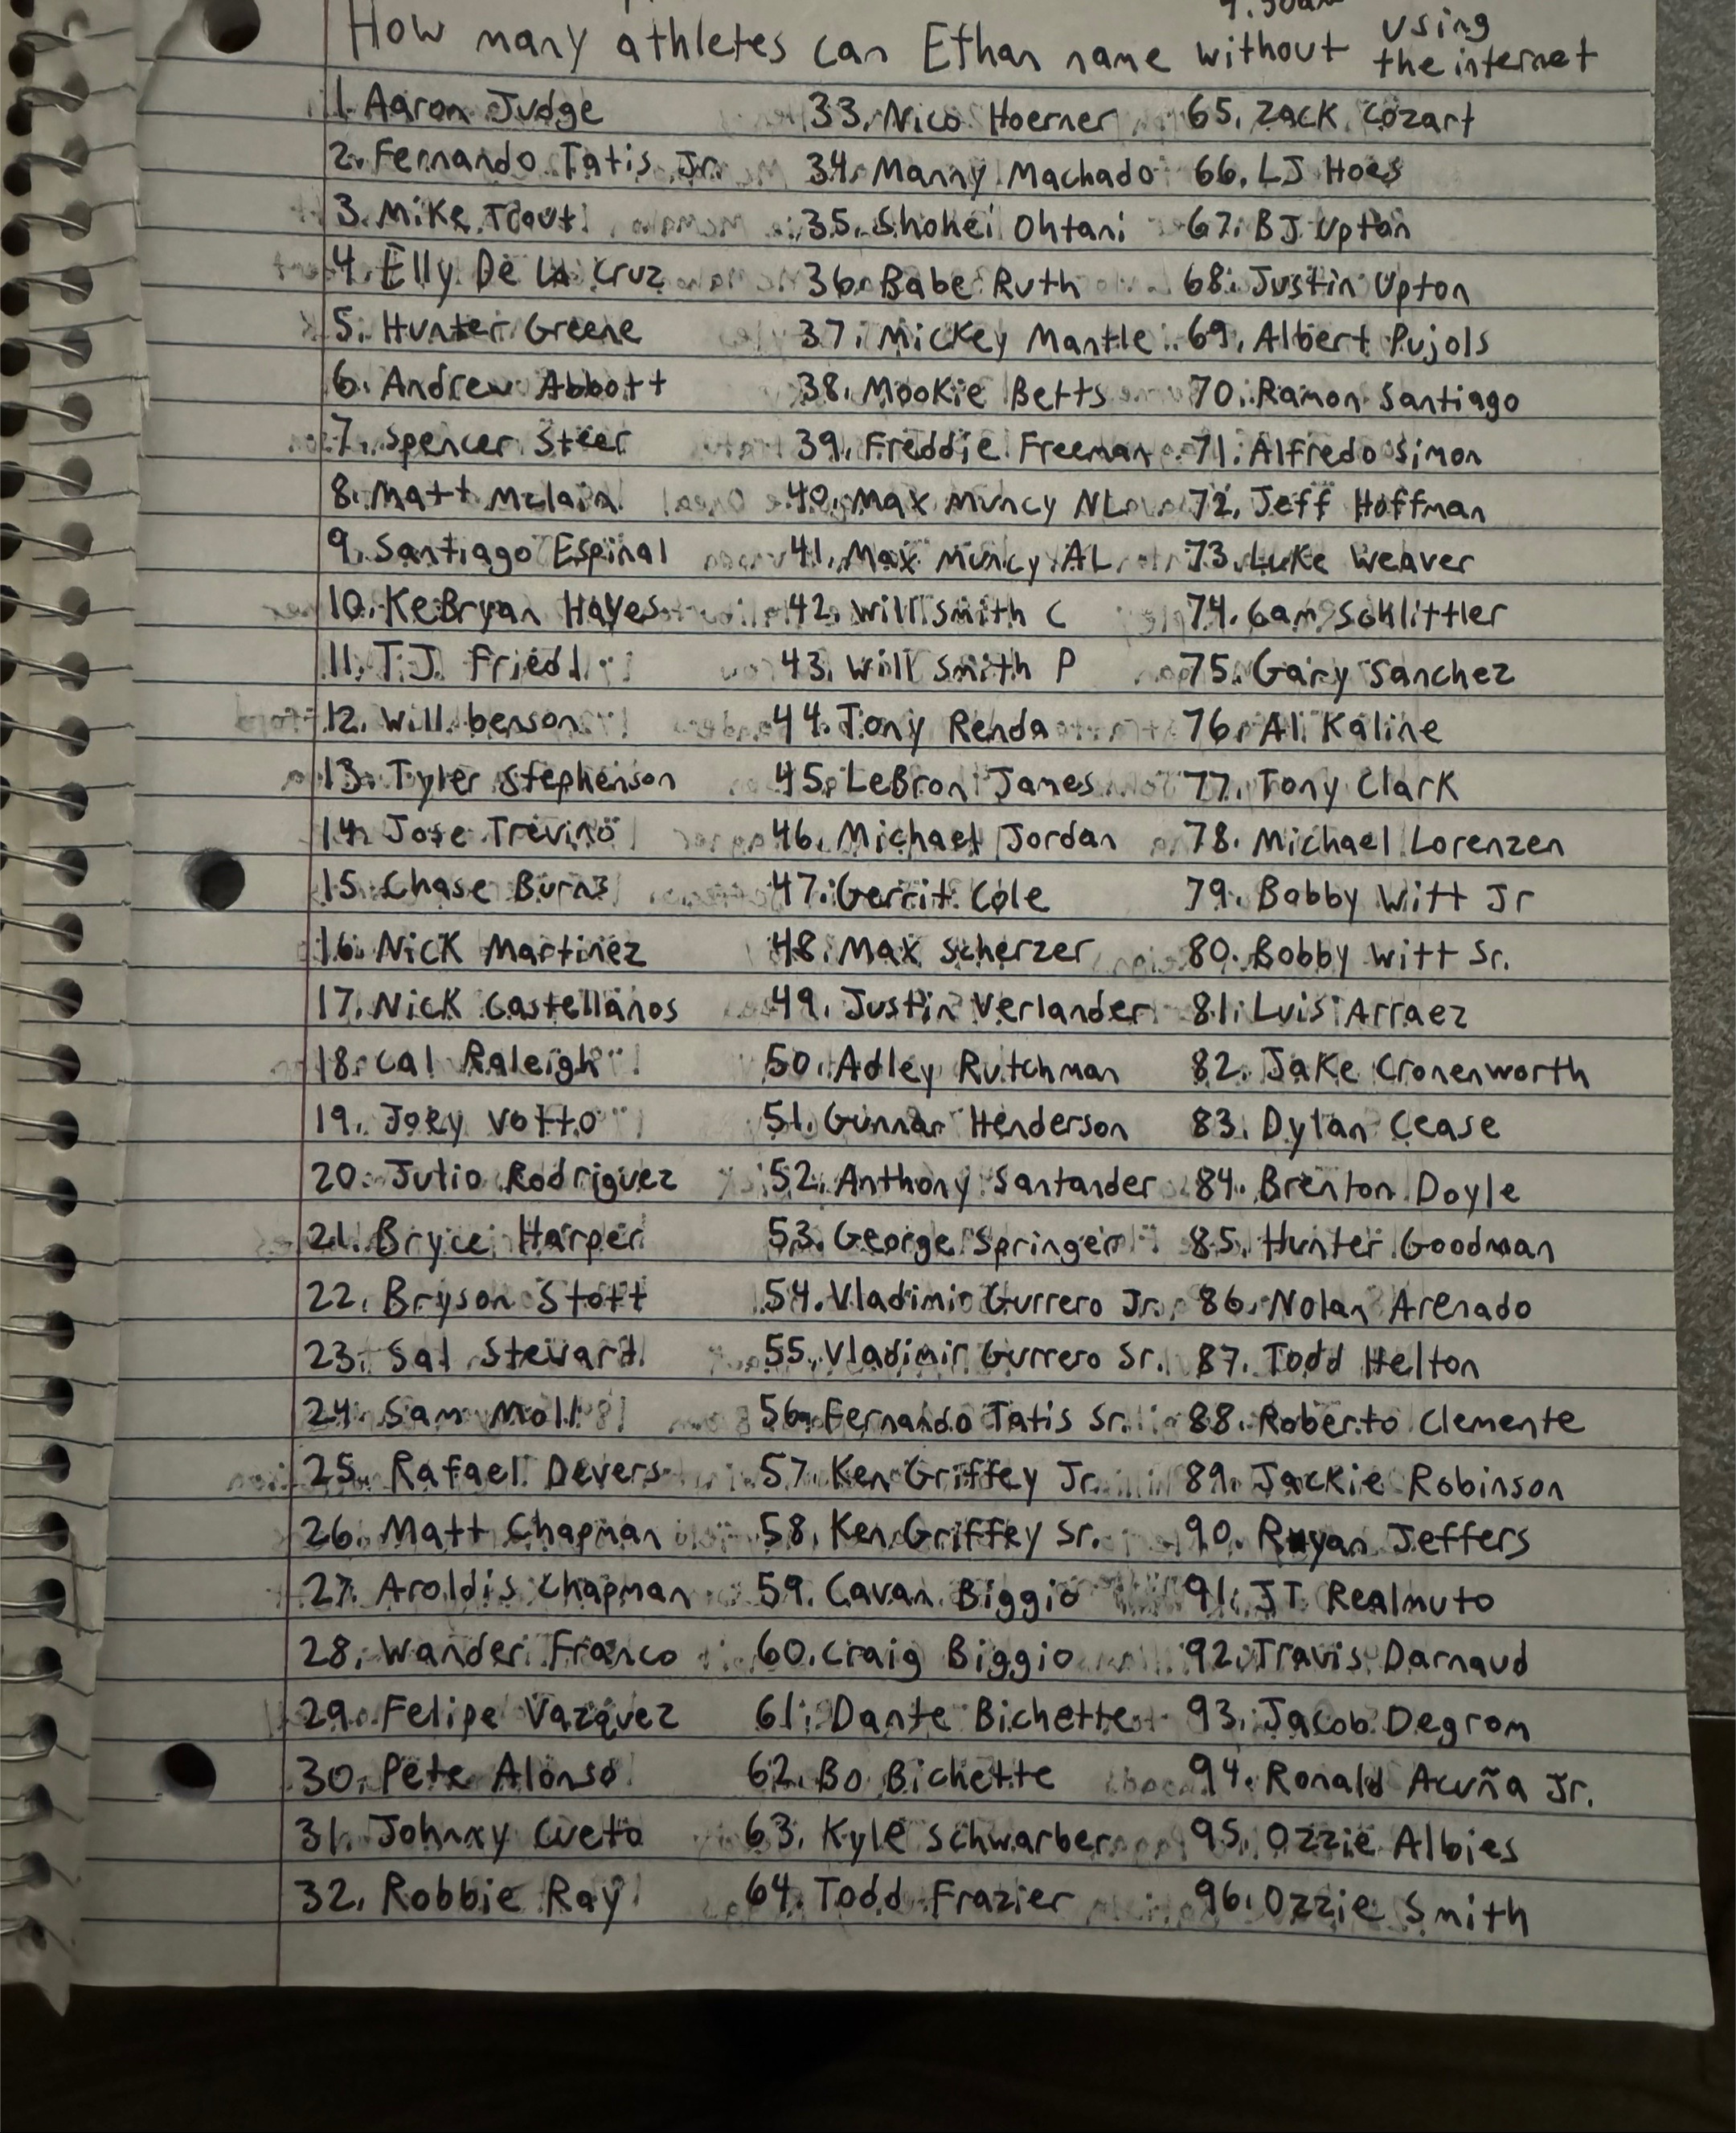 How many athletes can Ethan name without using
the internet
1. Aaron Judge
2. Fernando Tatis Jr.
3. Mike Trout
4. Elly De La Cruz
5. Hunter Greene
6. Andrew Abbott
7. Spencer Steer
8. Matt Mclain
9. Santiago Espinal
10. KeBryan Hayes
11. T.J. Friedl
12. Will benson
13. Tyler Stephenson
14. Jose Trevino
15. Chase Burns
16. Nick Martinez
17. Nick Castellanos
18. Cal Raleigh
19. Joey Votto
20. Julio Rodriguez
21. Bryce Harper
22. Bryson Stott
23. Sal Stewart
24. Sam Moll
25. Rafael Devers
26. Matt Chapman
27. Aroldis Chapman
28. Wander Franco
29. Felipe Vazquez
30. Pete Alonso
31. Johnny Cueto
32. Robbie Ray
33. Nico Hoerner
34. Manny Machado
35. Shohei Ohtani
36. Babe Ruth
37. Mickey Mantle
38. Mookie Betts
39. Freddie Freeman
40. Max Muncy NL
41. Max Muncy AL
42. Will Smith C
43. Will Smith P
44. Tony Renda
45. LeBron James
46. Michael Jordan
47. Gerrit Cole
48. Max Scherzer
49. Justin Verlander
50. Adley Rutchman
51. Gunnar Henderson
52. Anthony Santander
53. George Springer
54. Vladimir Gurrero Jr.
55. Vladimir Gurrero Sr.
56. Fernando Tatis Sr.
57. Ken Griffey Jr.
58. Ken Griffey Sr.
59. Cavan Biggio
60. Craig Biggio
61. Dante Bichette
62. Bo Bichette
63. Kyle Schwarber
64. Todd Frazier
65. Zack Cozart
66. LJ Hoes
67. BJ Upton
68. Justin Upton
69. Albert Pujols
70. Ramon Santiago
71. Alfredo Simon
72. Jeff Hoffman
73. Luke Weaver
74. Cam Schlittler
75. Gary Sanchez
76. Al Kaline
77. Tony Clark
78. Michael Lorenzen
79. Bobby Witt Jr
80. Bobby Witt Sr.
81. Luis Arraez
82. Jake Cronenworth
83. Dylan Cease
84. Brenton Doyle
85. Hunter Goodman
86. Nolan Arenado
87. Todd Helton
88. Roberto Clemente
89. Jackie Robinson
90. Ryan Jeffers
91. JT Realmuto
92. Travis Darnaud
93. Jacob Degrom
94. Ronald Acuña Jr.
95. Ozzie Albies
96. Ozzie Smith